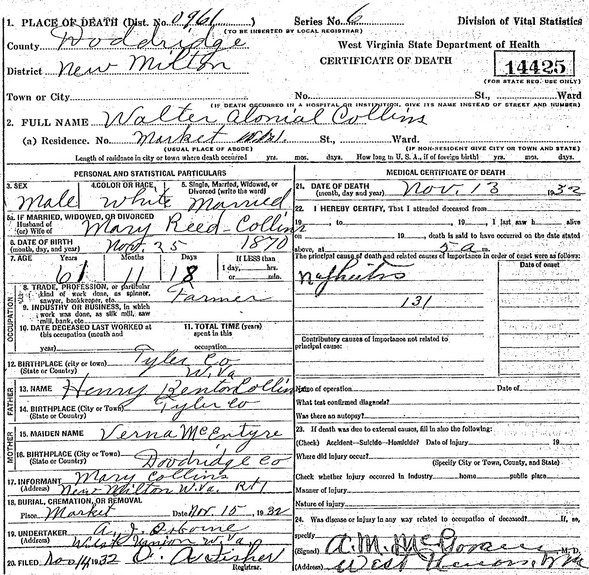 1. PLACE OF DEATH (Dist. No. 0961) Series No. 6 Division of Vital Statistics
(TO BE INSERTED BY LOCAL REGISTRAR)
County Doddridge West Virginia State Department of Health
District New Milton CERTIFICATE OF DEATH 14425
(FOR STATE REG. USE ONLY)
Town or City No. St., Ward
(IF DEATH OCCURRED IN A HOSPITAL OR INSTITUTION, GIVE ITS NAME INSTEAD OF STREET AND NUMBER)
2. FULL NAME Walter Alonial Collins
(a) Residence. No. Market St., Ward.
(USUAL PLACE OF ABODE) (IF NON-RESIDENT GIVE CITY OR TOWN AND STATE)
Length of residence in city or town where death occurred yrs. mos. days. How long in U. S. A., if of foreign birth? yrs. mos. days.
PERSONAL AND STATISTICAL PARTICULARS
3. SEX 4. COLOR OR RACE 5. Single, Married, Widowed, or Divorced (write the word)
Male White Married
5a. IF MARRIED, WIDOWED, OR DIVORCED
Husband of
(or) Wife of Mary Reed-Collins
6. DATE OF BIRTH
(month, day, and year) Nov. 25 1870
7. AGE Years Months Days If LESS than
1 day, hrs.
or min.
61 11 18
OCCUPATION
8. TRADE, PROFESSION, or particular
kind of work done, as spinner,
sawyer, bookkeeper, etc. Farmer
9. INDUSTRY OR BUSINESS, in which
work was done, as silk mill, saw
mill, bank, etc.
10. DATE DECEASED LAST WORKED at
this occupation (month and
year)
11. TOTAL TIME (years)
spent in this
occupation
12. BIRTHPLACE (city or town) Tyler Co
(State or Country) W.Va
FATHER
13. NAME Henry Benton Collins
14. BIRTHPLACE (City or Town) Tyler Co
(State or Country)
MOTHER
15. MAIDEN NAME Verna McEntyre
16. BIRTHPLACE (City or Town)
(State or Country) Doddridge Co
17. INFORMANT Mary Collins
(Address) New Milton W.Va. Rt 1
18. BURIAL, CREMATION, OR REMOVAL
Place Market Date Nov. 15, 1932
19. UNDERTAKER A. J. Osborne
(Address) West Union W.Va
20. FILED, 1932 Fisher
Registrar.
MEDICAL CERTIFICATE OF DEATH
21. DATE OF DEATH
(month, day, and year) Nov. 13 1932
22. I HEREBY CERTIFY, That I attended deceased from
, 19 , to , 19 , I last saw h alive
on , 19 , death is said to have occurred on the date stated
above, at 5 a m.
The principal cause of death and related causes of importance in order of onset were as follows:
Date of onset
Nephritis
131
Contributory causes of importance not related to
principal cause:
Name of operation Date of
What test confirmed diagnosis?
Was there an autopsy?
23. If death was due to external causes, fill in also the following:
(Check) Accident—Suicide—Homicide? Date of injury 19
Where did injury occur?
(Specify City or Town, County, and State)
Check whether injury occurred in industry home public place
Manner of injury
Nature of injury
24. Was disease or injury in any way related to occupation of deceased? If so,
specify
(Signed) A. M. M. D.
(Address) West Union, W.Va